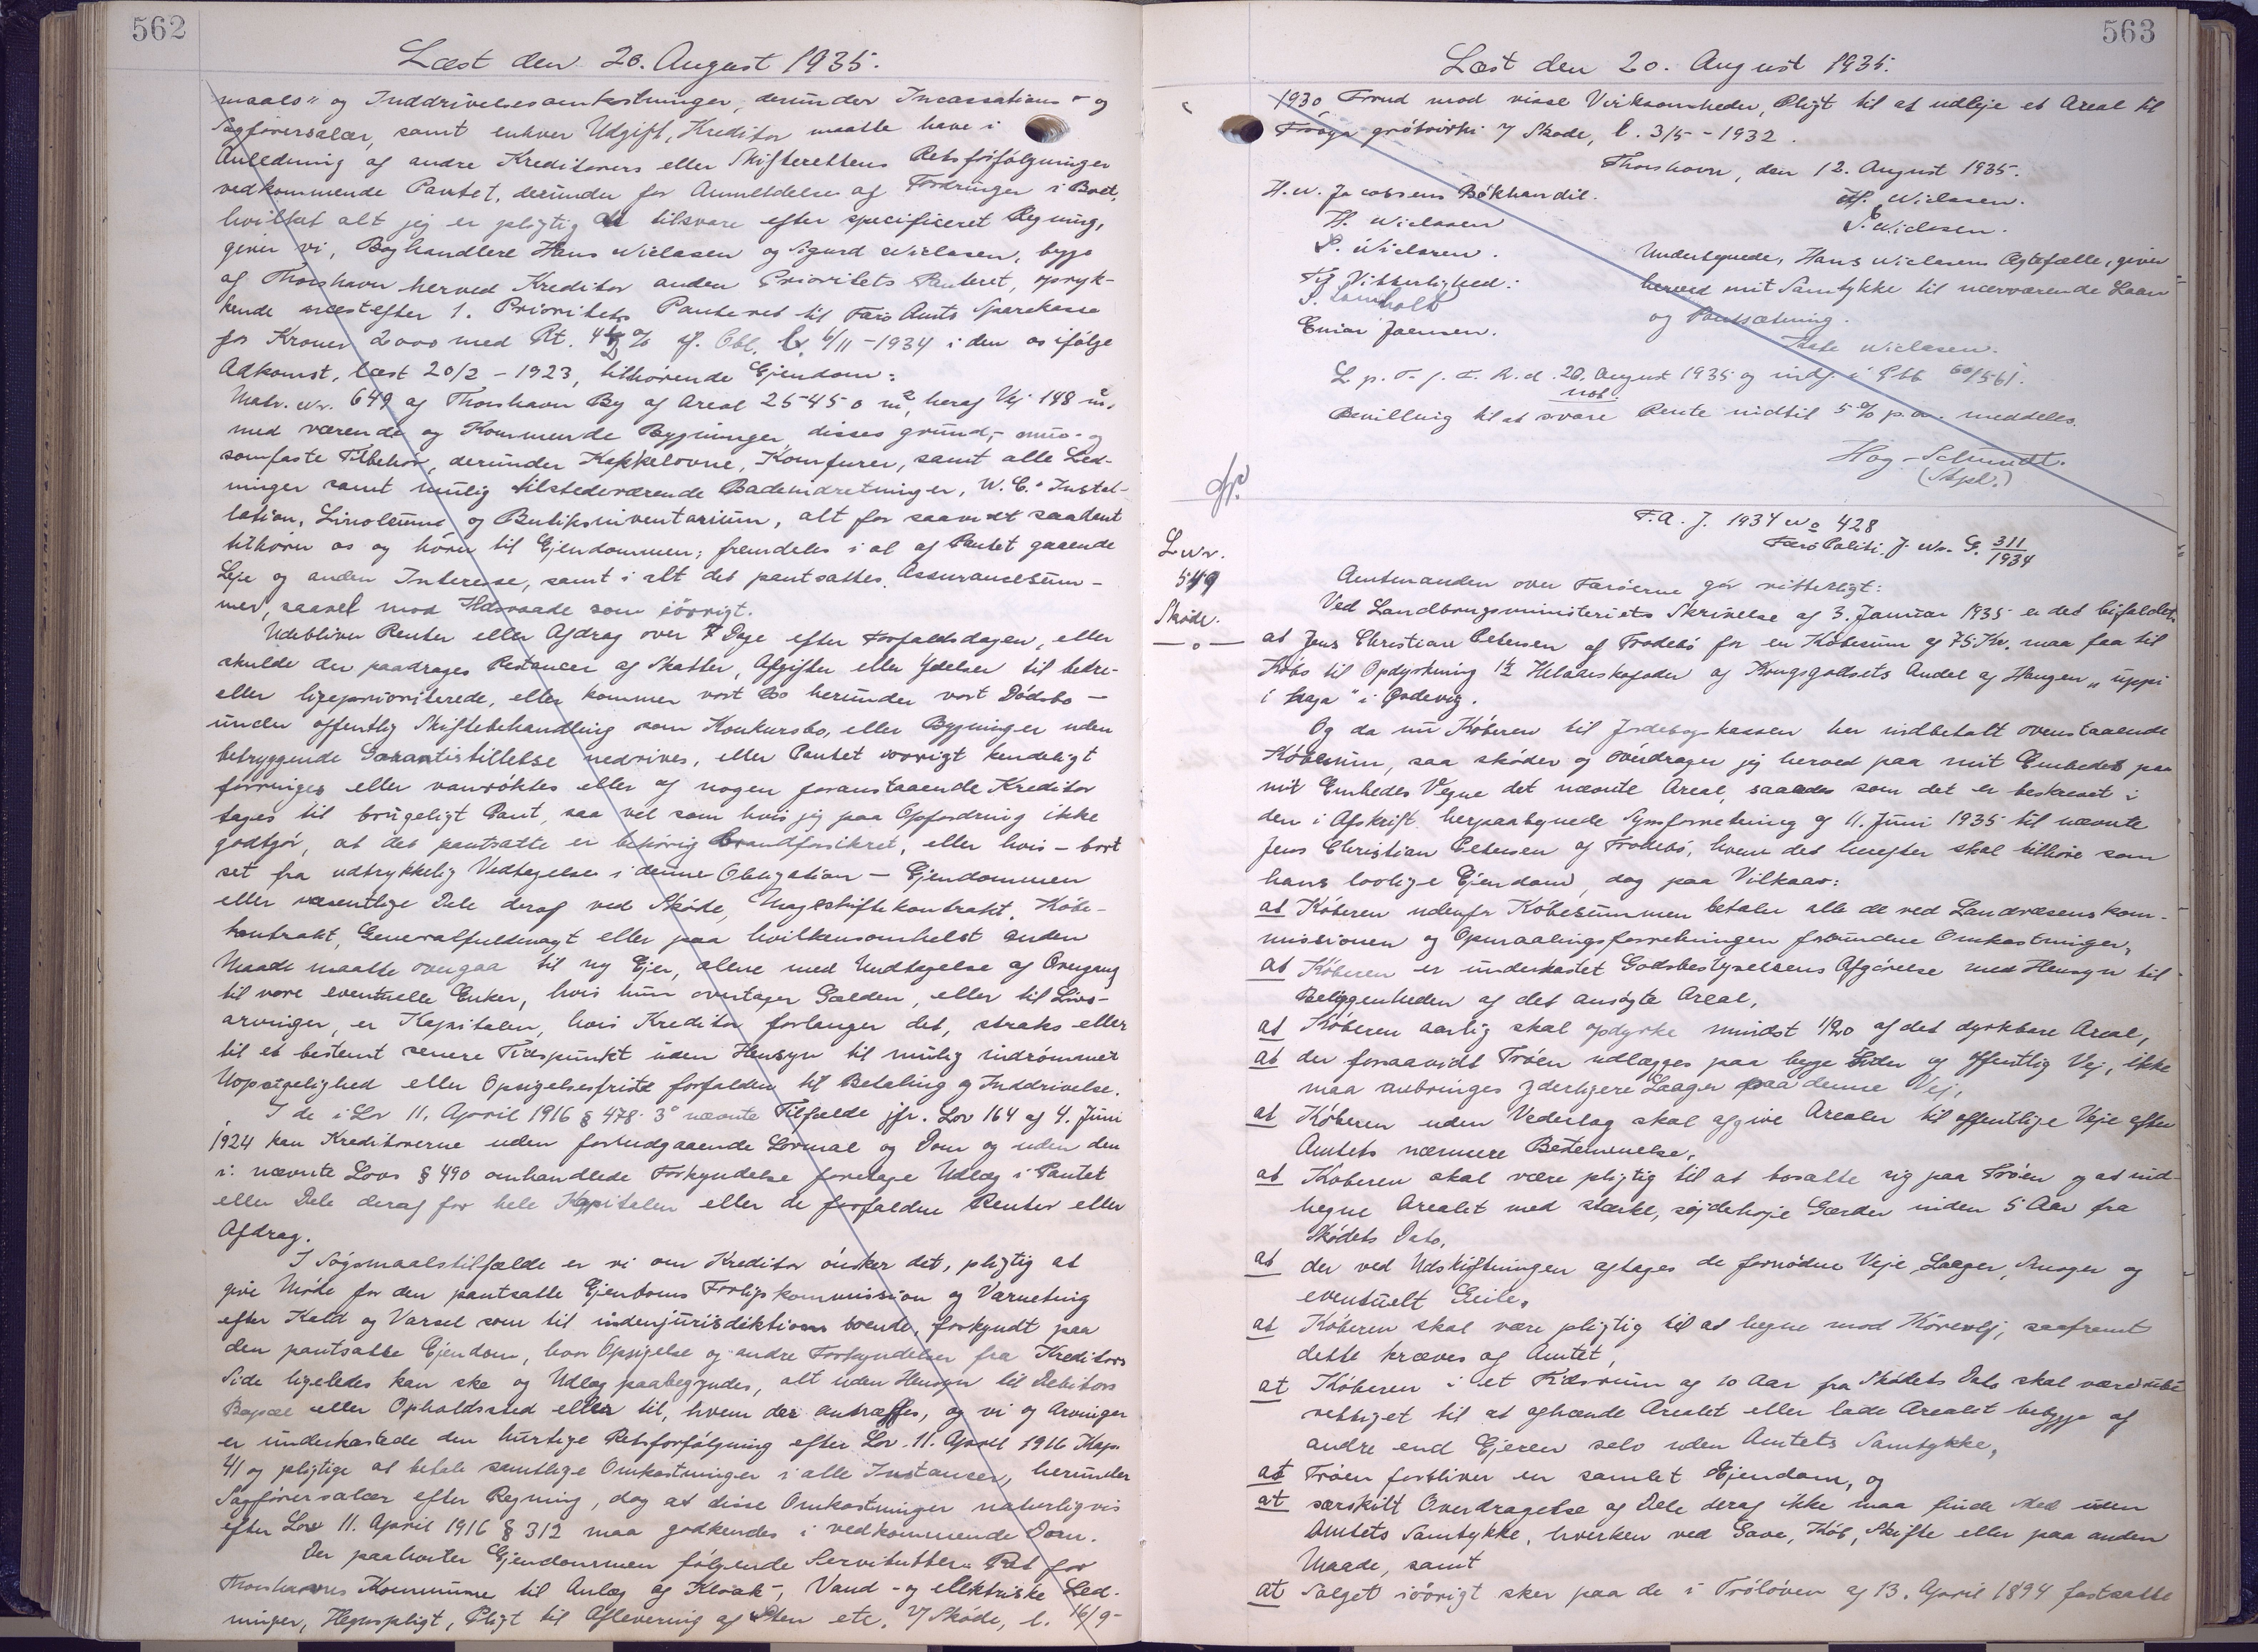 562
Læst den 20. August 1935.
maals" og Inddrivelsesomkostninger, derunder Incassations- og
Sagførersalær, samt enhver Udgift, Kreditor maatte have i
Anledning af andre Kreditorers eller Skifterettens Retsforfølgninger
vedkommende Pantet, derunder for Anmeldelse af Fordringer i Boet,
hvilket alt jeg er pligtig at tilsvare efter specificeret Regning,
giver vi, Boghandlere Hans Niclasen og Sigurd Niclasen, begge
af Thorshavn herved Kreditor anden Prioritets Panteret, opryk-
kende næstefter 1. Prioritets Panteret til Færø Amts Sparekasse
for Kroner 2000 med Rt. 4½ % if. Obl. l. 6/11 - 1934 i den os ifølge
Adkomst, læst 20/2 - 1923, tilhørende Ejendom:
Matr. Nr. 649 af Thorshavn By af Areal 25450 m², heraf Vej 148 m².
med værende og Kommende Bygninger, disses grund-, mur- og
sømfaste Tilbehør, derunder Kakkelovne, Komfurer, samt alle Led-
ninger samt mulig tilstedeværende Badeindretninger, W.C.-Instal-
lation, Linoleum og Butiksinventarium, alt for saavidt saadant
tilhører os og hører til Ejendommen; fremdeles i al af Pantet gaaende
Leje og anden Interesse, samt i alt det pantsattes Assurancesum-
mer, saavel mod Ildsvaade som iøvrigt.
Udebliver Renter eller Afdrag over 7 Dage efter Forfaldsdagen, eller
skulde der paadrages Restancer af Skatter, Afgifter eller Ydelser til bedre-
eller ligeprioriterede, eller kommer vort Bo herunder vort Dødsbo -
under offentlig Skiftebehandling som Konkursbo, eller Bygninger uden
betryggende Garantistillelse nedrives, eller Pantet iøvrigt kendeligt
forringes eller vanrøgtes eller af nogen foranstaaende Kreditor
tages til brugeligt Pant, saa vel som hvis jeg paa Opfordring ikke
godtgør, at det pantsatte er behørig brandforsikret, eller hvis - bort
set fra udtrykkelig Vedtagelse i denne Obligation - Ejendommen
eller væsentlige Dele deraf ved Skøde, Mageskiftekontrakt, Købe-
kontrakt, Generalfuldmagt eller paa hvilkensomhelst anden
Maade maatte overgaa til ny Ejer, alene med Undtagelse af Overgang
til vore eventuelle Enker, hvis hun overtager Gælden, eller til Livs-
arvinger, er Kapitalen, hvis Kreditor forlanger det, straks eller
til et bestemt senere Tidspunkt uden Hensyn til mulig indrømmet
Uopsigelighed eller Opsigelsesfrist forfalden til Betaling og Inddrivelse.
I de i Lov 11. April 1916 § 478. 3° nævnte Tilfælde jfr. Lov 164 af 4. Juni
1924 kan Kreditorerne uden forudgaaende Lovmaal og Dom og uden den
i nævnte Lovs § 490 omhandlede Forkyndelse foretage Udlæg i Pantet
eller Dele deraf for hele Kapitalen eller de forfaldne Renter eller
Afdrag.
I Søgsmaalstilfælde er vi om Kreditor ønsker det, pligtig at
give Møde for den pantsatte Ejendoms Forligskommission og Værneting
efter Kald og Varsel som til indenjurisdiktions boende, forkyndt paa
den pantsatte Ejendom, hvor Opsigelse og andre Forkyndelser fra Kreditors
Side ligeledes kan ske og Udlæg paabegyndes, alt uden Hensyn til Debitors
Bopæl eller Opholdssted eller til, hvem der antræffes, og vi og Arvinger
er underkastede den hurtige Retsforfølgning efter Lov 11. April 1916 Kap.
41 og pligtige at betale samtlige Omkostninger i alle Instanser, herunder
Sagførersalær efter Regning, dog at disse Omkostninger naturligvis
efter Lov 11. April 1916 § 312 maa godkendes i vedkommende Dom.
Der paahviler Ejendommen følgende Servitutter: Ret for
Thorshavns Kommune til Anlæg af Kloak-, Vand- og elektriske Led-
ninger, Hegnspligt, Pligt til Aflevering af Sten etc. if Skøde, l. 16/9-
563
Læst den 20. August 1935.
1930 Forbud mod visse Virksomheder, Pligt til at udleje et Areal til
Frøya grótvirki if Skøde, l. 3/5 - 1932.
Thorshavn, den 12. August 1935.
H. N. Jacobsens Bókhandil.
H. Niclasen.
H. Niclasen
S. Niclasen.
S. Niclasen.
Undertegnede, Hans Niclasens Ægtefælle, giver
Til Vitterlighed:
herved mit Samtykke til nærværende Laan
og Pantsætning.
Einar Joensen.
Niclasen.
L. p. T. f. F. R. d. 20. August 1935 og indf. i Pbb 60/561.
not.
Bevilling til at svare Rente indtil 5% p.a. meddeles.
Hag-Schmidt.
(Stpl.)
F.A. J. 1934 No 428
Færø Politi J. Nr. G. 311/1934
L Nr.
549
Skøde.
Amtmanden over Færøerne gør vitterligt:
Ved Landbrugsministeriets Skrivelse af 3. Januar 1935 er det bifaldet,
at Jens Christian Petersen af Frodebø for en Købesum af 75 Kr. maa faa til
Købs til Opdyrkning 1½ Helaarskofoder af Kongsgodsets Andel af Haugen "uppi
i haga" i Ørdevig.
Og da nu Køberen til Jordebogskassen her indbetalt ovenstaaende
Købesum, saa skøder og overdrager jeg herved paa mit Embedes paa
mit Embedes Vegne det nævnte Areal, saaledes som det er beskrevet i
den i Afskrift herpaategnede Synsforretning af 11. Juni 1935 til nævnte
Jens Christian Petersen af Frodebø, hvem det herefter skal tilhøre som
hans lovlige Ejendom, dog paa Vilkaar:
at Køberen udenfor Købesummen betaler alle de ved Landvæsenskom-
missionen og Opmaalingsforretningen forbundne Omkostninger,
at Køberen er underkastet Godsbestyrelsens Afgørelse med Hensyn til
Beliggenheden af det ansøgte Areal,
at Køberen aarlig skal opdyrke mindst 1/20 af det dyrkbare Areal,
at der forsaavidt Trøen udlægges paa begge Sider af offentlig Vej, ikke
maa anbringes yderligere Laager paa denne Vej,
at Køberen uden Vederlag skal afgive Arealer til offentlige Veje efter
Amtets nærmere Bestemmelse,
at Køberen skal være pligtig til at bosætte sig paa Trøen og at ind-
hegne Arealet med stærke, sejdehøje Gærder inden 5 Aar fra
Skødets Dato,
at der ved Udskiftningen aftages de fornødne Veje, Laager, Smoger og
eventuelt Geile,
at Køberen skal være pligtig til at hegne mod Kørevej, saafremt
dette kræves af Amtet,
at Køberen i et Tidsrum af 10 Aar fra Skødets Dato skal være ube-
rettiget til at afhænde Arealet eller lade Arealet bebygge af
andre end Ejeren selv uden Amtets Samtykke,
at Trøen forbliver en samlet Ejendom, og
at særskilt Overdragelse af Dele deraf ikke maa finde Sted uden
Amtets Samtykke, hverken ved Gave, Køb, Skifte eller paa anden
Maade, samt
at Salget iøvrigt sker paa de i Trøloven af 13. April 1894 fastsatte